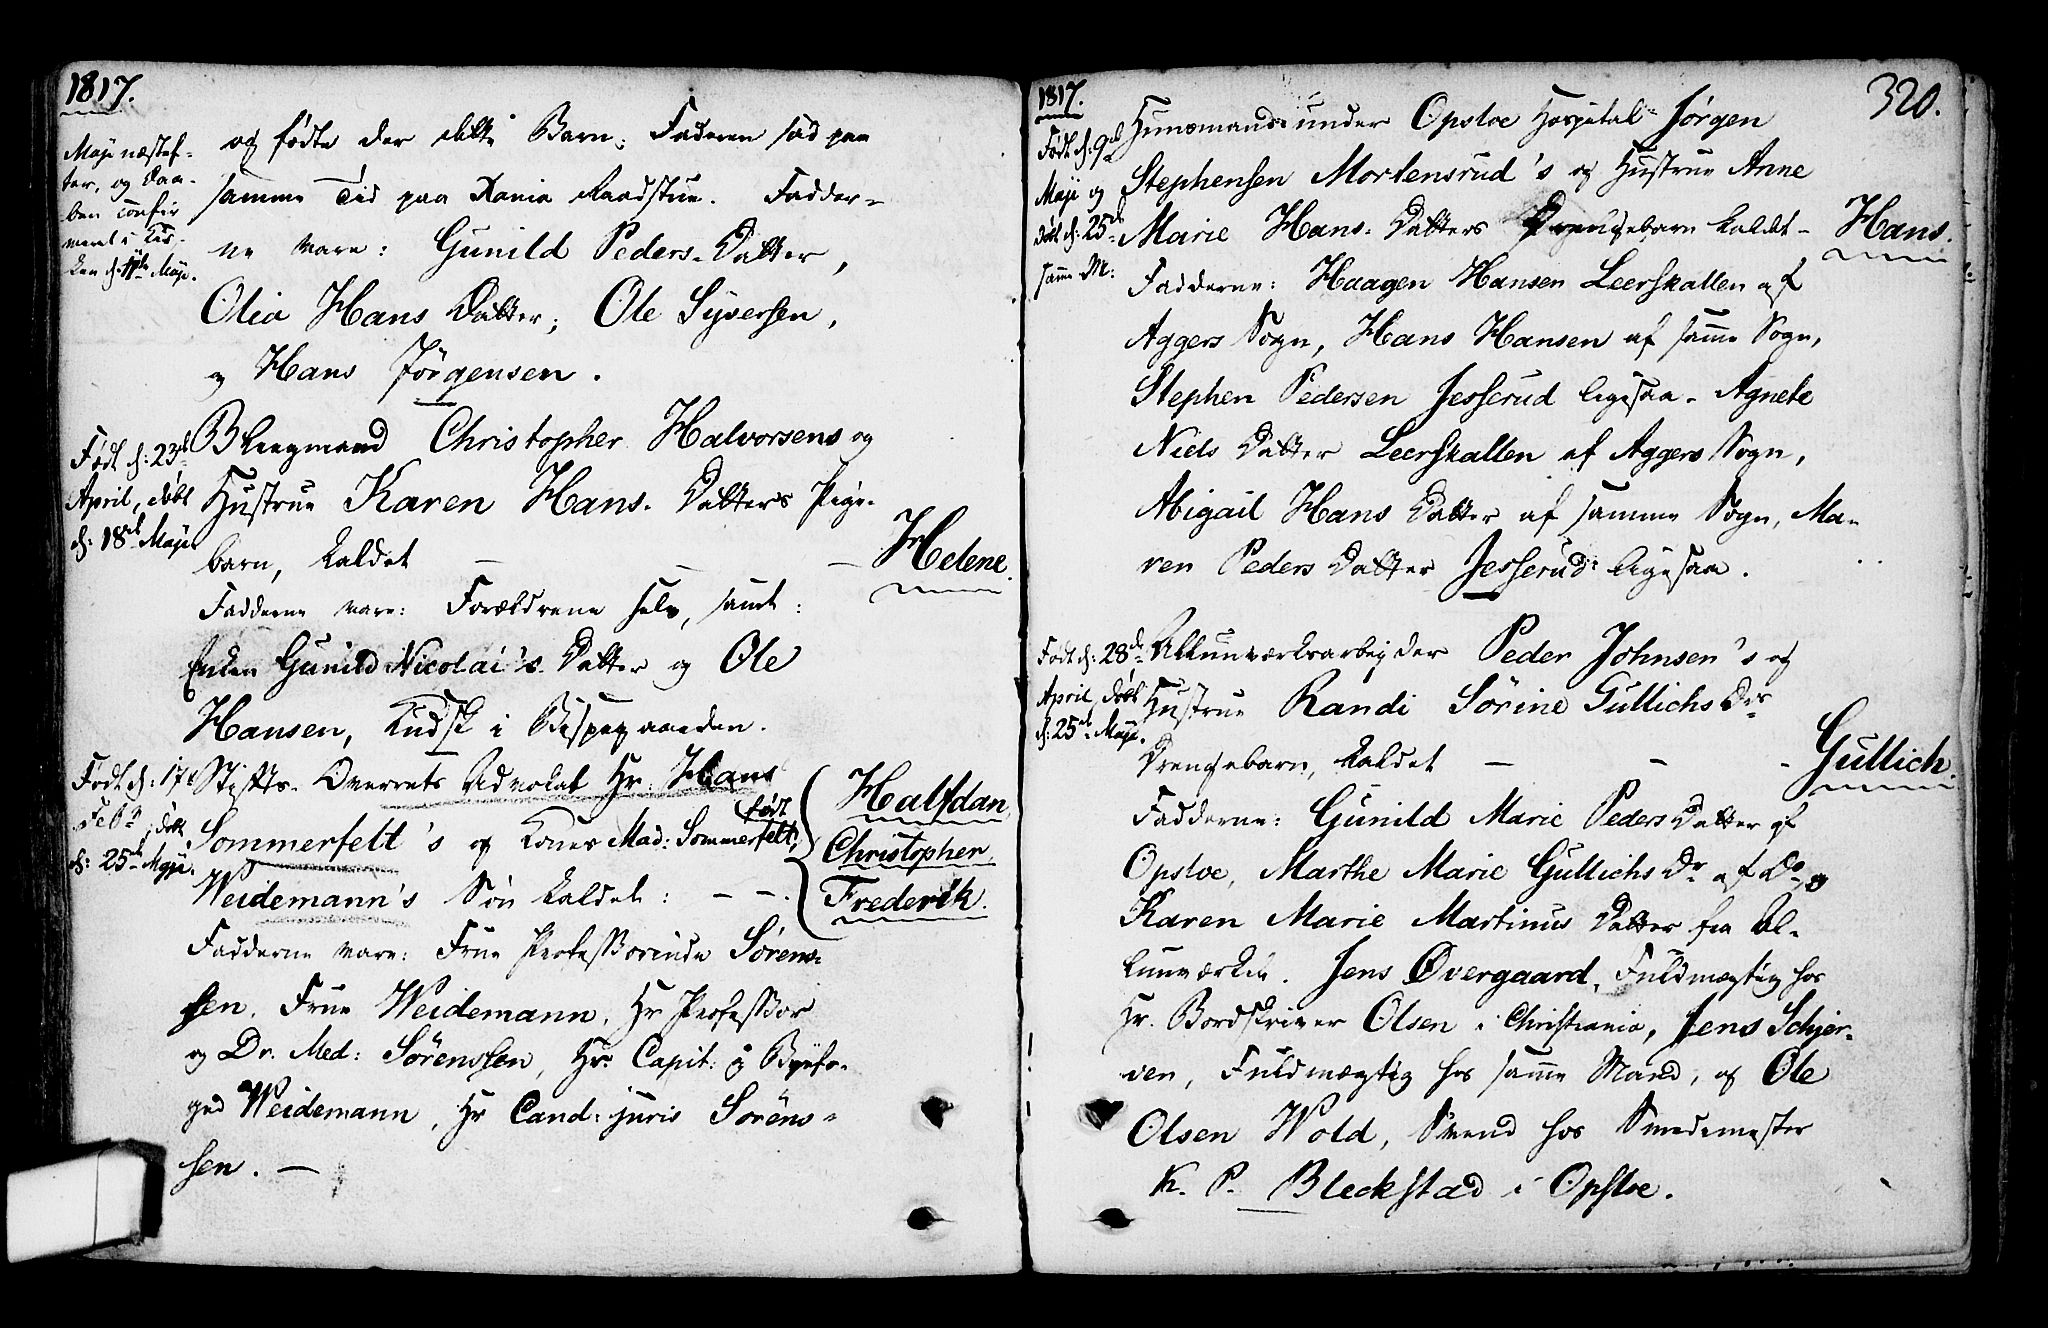 1817.
Maji næstef-
ter, og Daa-
ben confir
meret i Kir-
ken d: 11te Maji.
og fødte der dette Barn; Faderen sad paa
samme Tid paa Xania Raadstue. Fadder-
ne vare: Gunild Peders-Datter,
Olia Hans Datter; Ole Syversen,
og Hans Jörgensen.
Født d: 23de
April, døbt
d: 18de Maji
Christopher Halvorsens og
Hustrue Karen Hans-Datters Pige-
barn, kaldet – – – Helene.
Fadderne vare: Forældrene selv, samt:
Enken Gunild Nicolai's Datter og Ole
Hansen, Kudsk i Bispegaarden.
Født d: 17de
Feb., døbt
d: 25de Maji.
Stifts-Overrets Advokat Hr. Hans
Sommerfelt's og Kones Mad: Sommerfelt, født
Weidemann's Søn kaldet: – – Halfdan
Christopher
Frederik.
Fadderne vare: Frue Professorinde Sörens-
sen, Frue Weidemann, Hr Professor
og Dr. Med: Sörenssen, Hr. Capit: og Byefo-
ged Weidemann, Hr Cand: juris Sörens-
sen. –
1817.
320.
Født d: 9de
Maji og
døbt d: 25de
samme M:
Huusmands under Opsloe Hospital Jörgen
Stephensen Mortensrud's og Hustrue Anne
Marie Hans-Datters Drengebarn kaldet – Hans.
Fadderne: Haagen Hansen Leerskallen af
Aggers Sogn, Hans Hansen af samme Sogn,
Stephen Pedersen Jesserud ligesaa – Agnete
Niels Datter Leerskallen af Aggers Sogn,
Abigail Hans Datter af samme Sogn, Ma-
ren Peders Datter Jesserud ligesaa.
Født d: 28de
April, døbt
d: 25de Maji.
Allunværksarbejder Peder Johnsen's og
Hustrue Randi Sörine Gullichs Drs
Drengebarn, kaldet – – - Gullich.
Fadderne: Gunild Marie Peders Datter af
Opsloe, Marthe Marie Gullichs Dr af Do, og
Karen Marie Martinus Datter fra Al-
lunværket. Jens Övergaard, Fuldmægtig hos
Hr. Bordskriver Olsen i Christiania, Jens Schjer-
ven, Fuldmægtig hos samme Mand, og Ole
Olsen Wold, Svend hos Smedemester
K. P. Bleckstad i Opsloe.